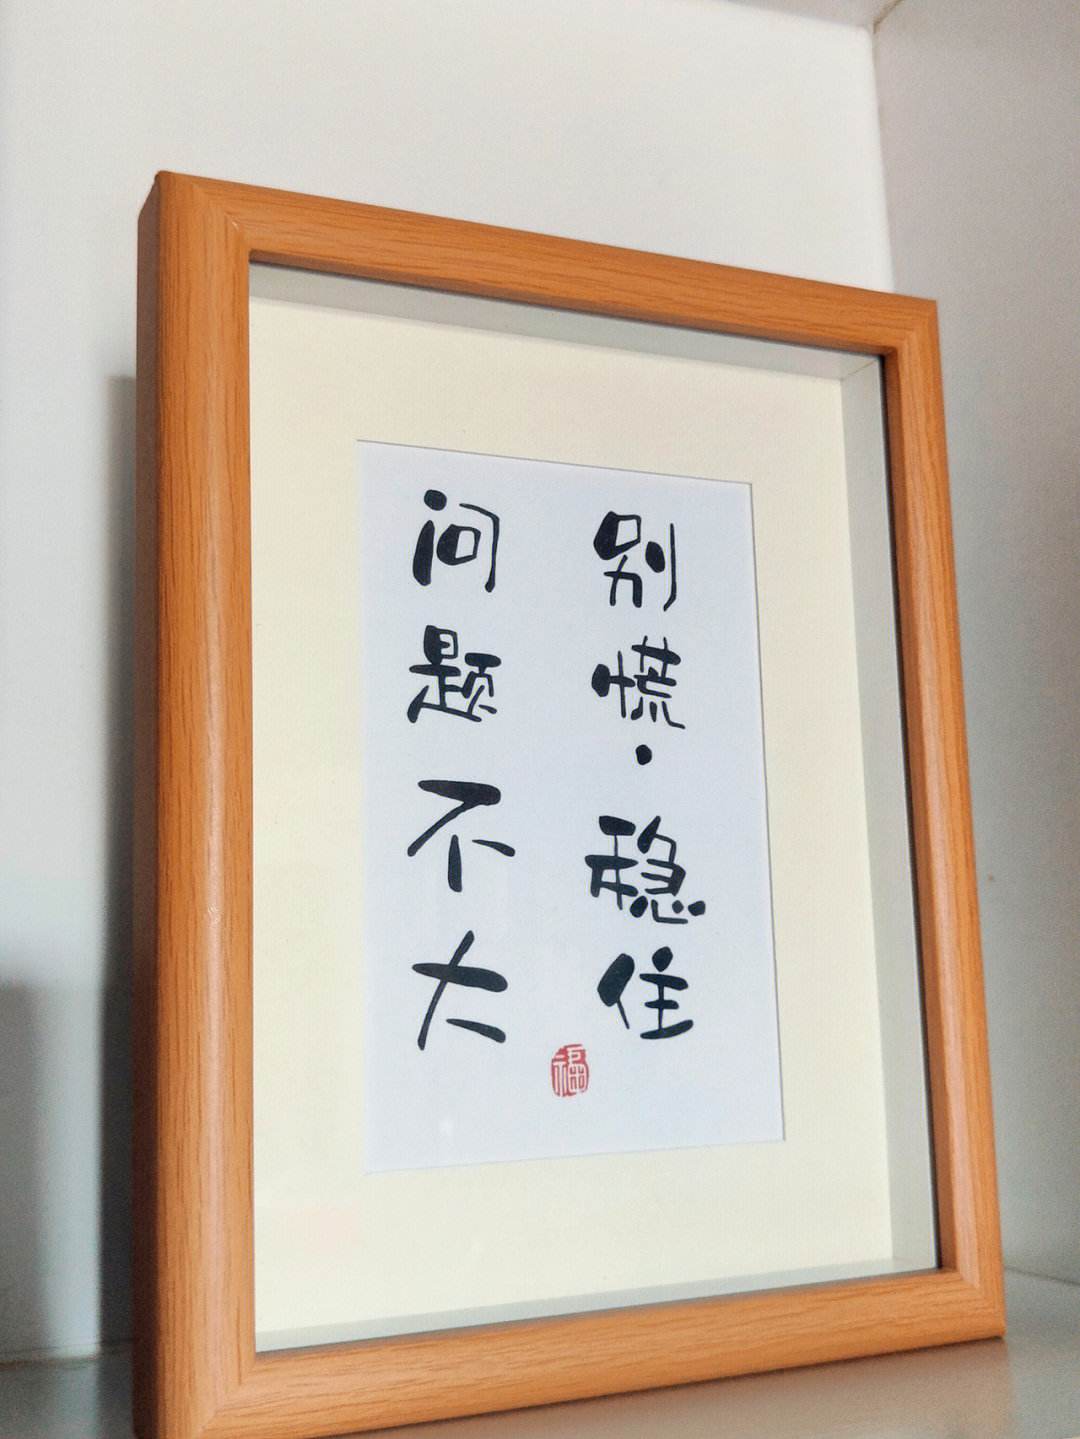 别慌·稳住
问题不大
福